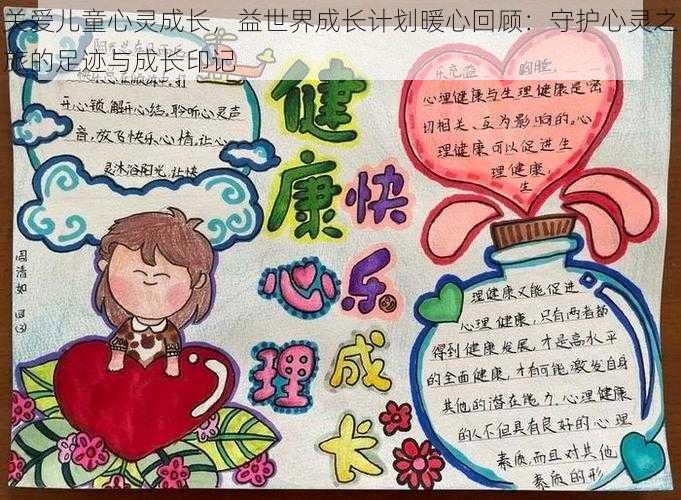 关爱儿童心灵成长，益世界成长计划暖心回顾：守护心灵之
旅的足迹与成长印记
开心锁,解开心结,聆听心灵声
音,放飞快乐心情,让心
灵沐浴阳光,让快
健康
心理
快乐
成长
乐充溢 胸膛,
心理健康与生理健康是密
切相关、互为影响的,心
理健康可以促进生
理健康,
生
理健康又能促进
心理健康,只有两者都
得到健康发展,才是高水平
的全面健康,才有可能激发自身
其他的潜在能力,心理健康
的人不但具有良好的心理
素质,而且对其他
素质的形
周清如
四(3)